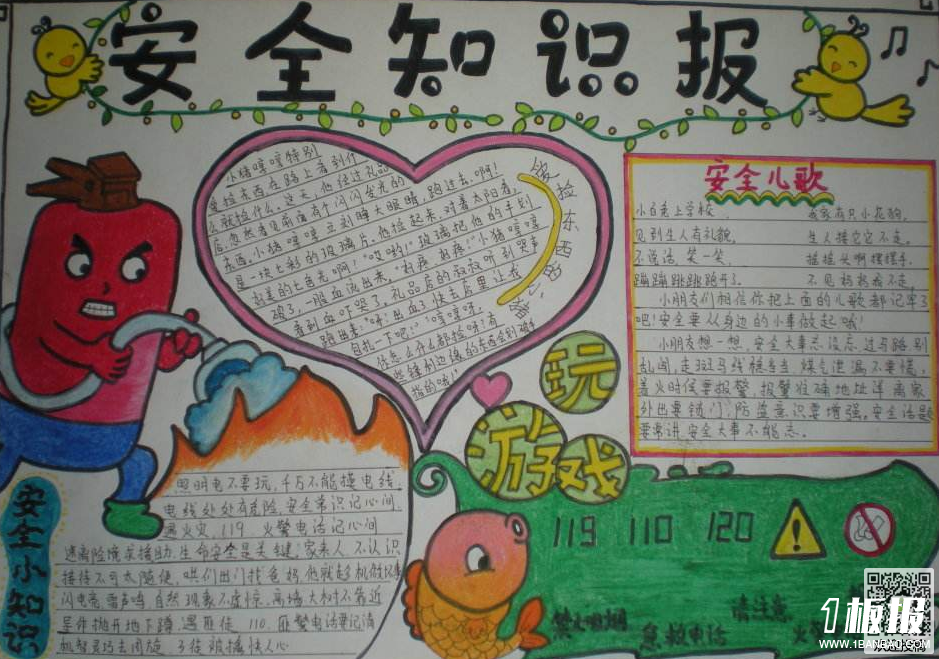 安全知识报
小猪哼哼特别
爱捡东西在路上看到什
么就捡什么。这天，他经过礼品
店，忽然看见前面有个闪闪发光的
东西，小猪哼哼立刻睁大眼睛，跑过去，啊！
是一块七彩的玻璃片。他捡起来，对着太阳看，
好美的七色光啊！"哎哟！"玻璃把他的手划
破了，一股血流出来。"好疼！好疼！"小猪哼哼
看到血吓哭了。礼品店的叔叔听到哭声
跑出来："呀！出血了快去店里让我
包扎一下吧！""哼哼呀，
你怎么什么都捡呀！有
些锋利边缘的东西会划破手
指的哦！"
捡东西
安全儿歌
小白兔上学校，
见到生人有礼貌，
不说话，笑一笑，
蹦蹦跳跳跑开了。
我家有只小花狗，
生人接它它不走。
摇摇头啊摆摆手，
不见妈妈我不走，
小朋友们相信你把上面的儿歌都记牢了
吧！安全要从身边的小事做起哦！
小朋友想一想，安全大事忘没忘，过马路别
乱闯，走斑马线稳当当，煤气泄漏不要慌，
着火时候要报警，报警准确地址详，离家
外出要锁门，防盗意识要增强。安全话题
要常讲，安全大事不能忘。
玩
游戏
119 110 120
急救电话
请注意
安全小知识
照明电不要玩，千万不能摸电线。
电线处处有危险，安全常识记心间。
遇火灾，119，火警电话记心间
逃离险境求援助，生命安全是关键，家来人，不认识
接待不可太随便，哄们出门找爸妈，他就趁机做坏事
闪电亮，雷声鸣，自然现象不虚惊，离墙大树不靠近
手伞抛开地下蹲，遇匪徒，110，匪警电话要记清
机智灵巧去周旋，歹徒难撬铁人心
1板报
WWW.1BANBAO.COM